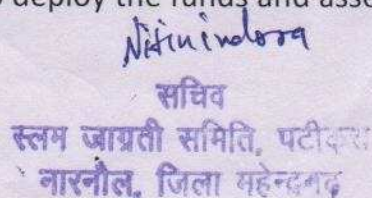 deploy the funds and asse
सचिव
स्लम जाग्रती समिति, पटीकरा
नारनौल, जिला महेन्द्रगढ़